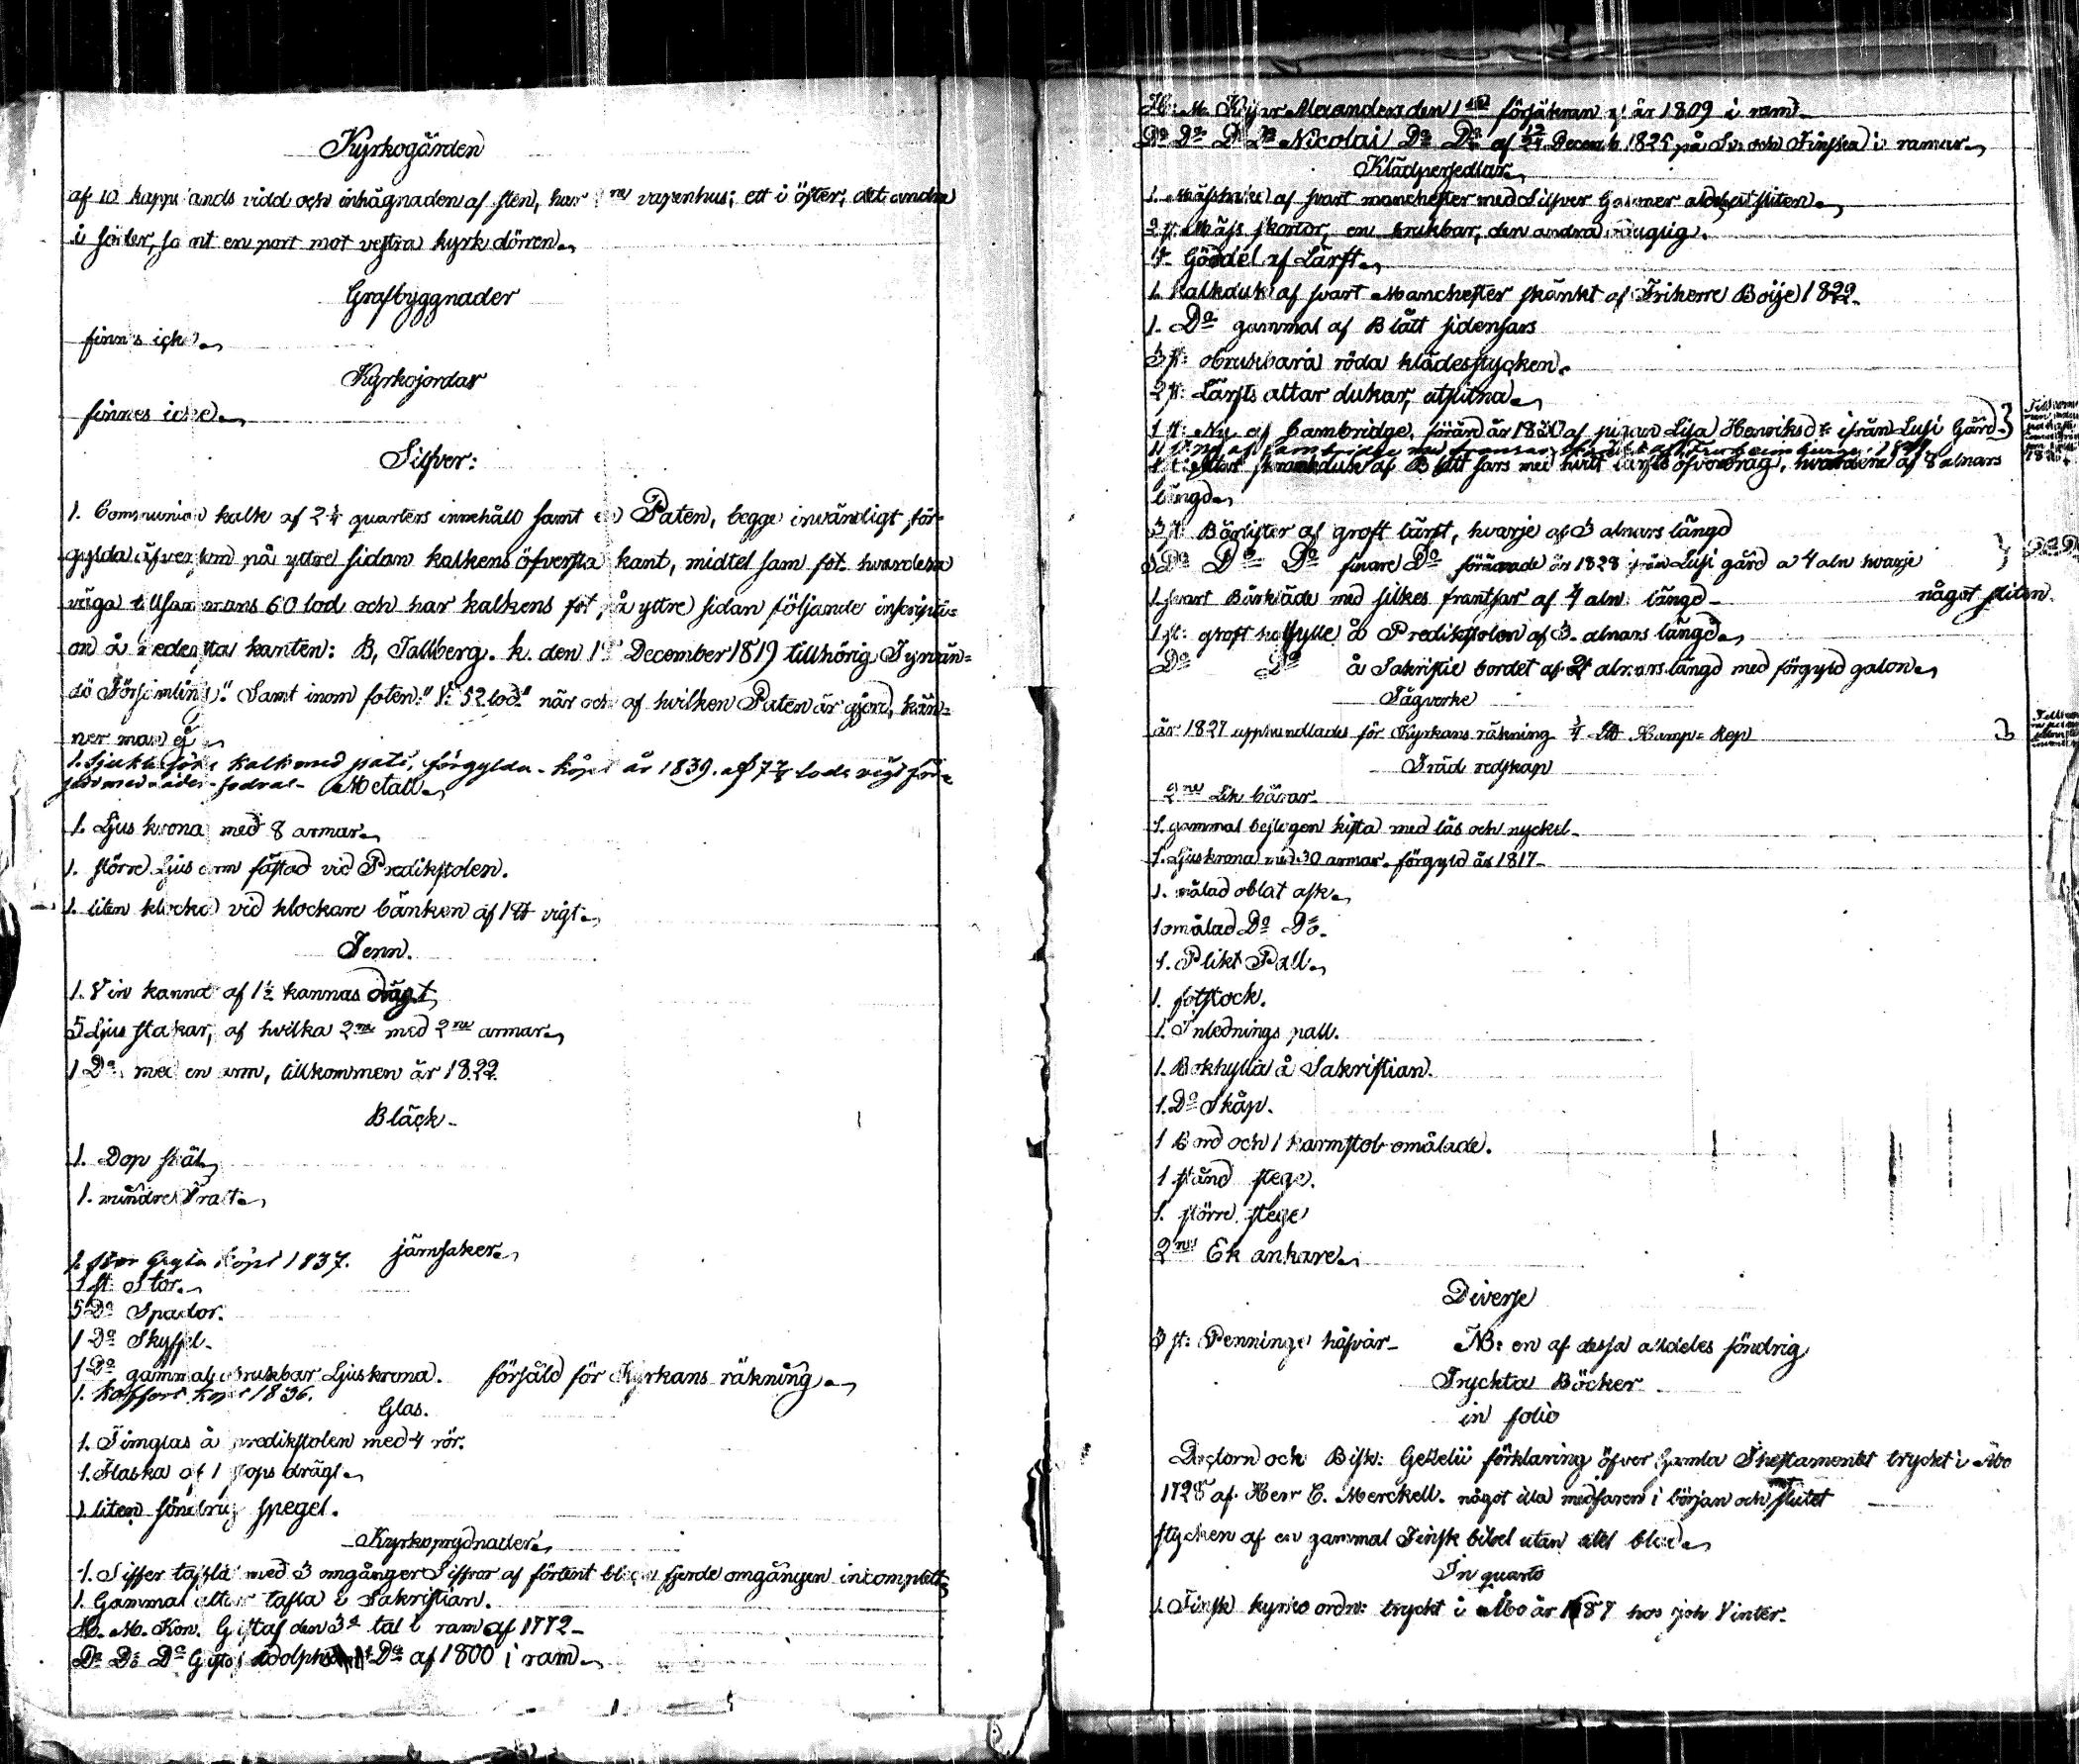 Kyrkogården
af 10 kapplands vidd och inhägnaden af sten, har 2ne vapenhus; ett i öster, det andra
i söder, samt en port mot vestra kyrk dörren.
Grafbyggnader
finnes icke.
Kyrkojordar
finnes icke.
Silfver:
1. Communion kalk af 2¼ quarters innehåll samt en Paten, begge invändigt för-
gylda äfvensom på yttre sidan kalkens öfversta kant, midtel sam fot hvardera
väga tillsammans 60 lod och har kalkens fot på yttre sidan följande inscripti=
on å nedersta kanten: B. Tallberg. k. den December 1819 tillhörig Tyrvän=
dö Församling". Samt inom foten: "V: 52 lod." när och af hvilken Paten är gjord, kän=
ner man ej
1. Sjukbesöks kalk med paté, förgylda - köpt år 1839. af 7½ lods vigt för-
med läder-fodral-
Metall.
1. Ljuskrona med 8 armar.
1. större Ljus arm fästad vid Predikstolen.
1. liten klocka vid klockare bänken af 1 ℔ vigt.
Tenn.
1. Vin kanna af 1½ kannas drägt,
5 Ljus stakar, af hvilka 2ne med 2ne armar.
1 Do med en arm, tillkommen år 1822.
Bläck-
1. Dop skål,
1. mindre Tratt.
järnsaker.
1. stor köpt 1837.
1 st: Stör.
5 Do Spador.
1 Do Skyffel-
1 Do gammal obrukbar Ljuskrona. försåld för Kyrkans räkning.
1. köpt 1836.
Glas.
1. Timglas å predikstolen med 4 rör.
1. Flaska af 1 stops drägt.
1. liten sönd:ig spegel.
Kyrkoprydnader.
1. Siffer tafla med 3 omgånger Siffror af förtent bleck, fjerde omgången incomplett
1. Gammal altar tafla i Sakristian.
H. M. Kon. Gustaf den 3e tal i ram af 1772-
Do Do Do Gustaf Adolphs Do af 1800 i ram.
H: M. Kejsar Alexanders den 1sta försäkran af år 1809 i ram-
Do Do Do Do Nicolai Do Do af 12/24 Decemb 1825 på Sv. och Finska i ramar.
Klädpersedlar.
1. Mässhake af svart manchester med Silfver Galoner aldeles utsliten.
2 st: Mäss skortor, en brukbar, den andra oduglig.
1 st. Gördel af Lärft.
1. kalkduk af svart Manchester skänkt af Friherre Boije 1822.
1. Do gammal af Blått sidensars
3 st: obrukbara röda klädesstycken.
2 st: Lärfts altar dukar, utslitna.
1 st: Ny af Cambridge, förärd år af pigan Lisa Henriksdr ifrån Lusi Gård-
1 st: Altar skrankduk af Blått sars med hvitt lärfts öfverdrag, hvardera af 8 alnars
längd.
3 st: Bårlister af groft lärft, hvarje af 3 alnars längd
Do Do Do finare Do förärade år 1828 från Lusi gård a 4 aln hvarje
1. svart Bårkläde med silkes frantsar af 4 aln: längd- något sliten.
1 st: groft hyffylle å Predikstolen af 3 alnars längd.
Do Do å Sakristie bordet af 2 alnars längd med förgyld galon.
Tågverke
år 1827 upphandlades för Kyrkans räkning Hamp= Rep
Träd redskap
2ne Lik bårar-
1. gammal beslagen kista med lås och nyckel-
1. Ljuskrona med 30 armar. förgyld år 1817-
1. målad oblat ask.
1 omålad Do Do.
1. Plikt Pall.
1. fotstock.
1. Inlednings pall.
1. Bokhylla å Sakristian.
1. Do Skåp.
1 Bord och 1 karmstol omålade.
1 stånd stege.
1. större stege
2ne Ek ankare.
Diverse
3 st: Penninge håfvar- NB: en af dessa aldeles söndrig
Tryckta Böcker
in folio
Doctorn och Bisk: Gezelii förklaring öfver Gamla Thestamentet tryckt i Åbo
1728 af Herr E. Merckell. något illa medfaren i början och slutet
stycken af en gammal Finsk bibel utan titel blad.
In quarto
1. Finsk kyrko ordn: tryckt i Åbo år 1687 hos Joh Vinter.